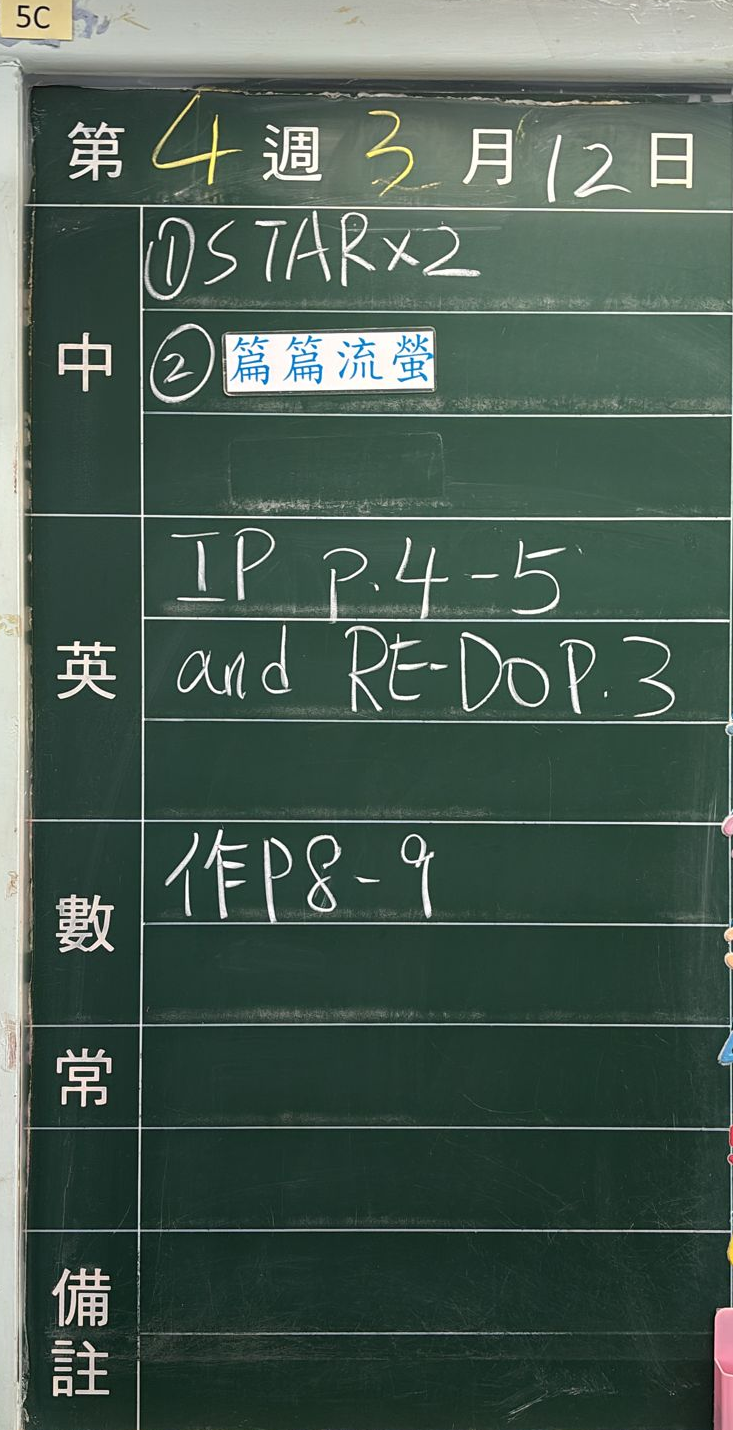 5C
第4週3月12日
中
①STAR×2
②篇篇流螢
英
IP P.4-5
and RE-DO P.3
數
作P8-9
常
備註